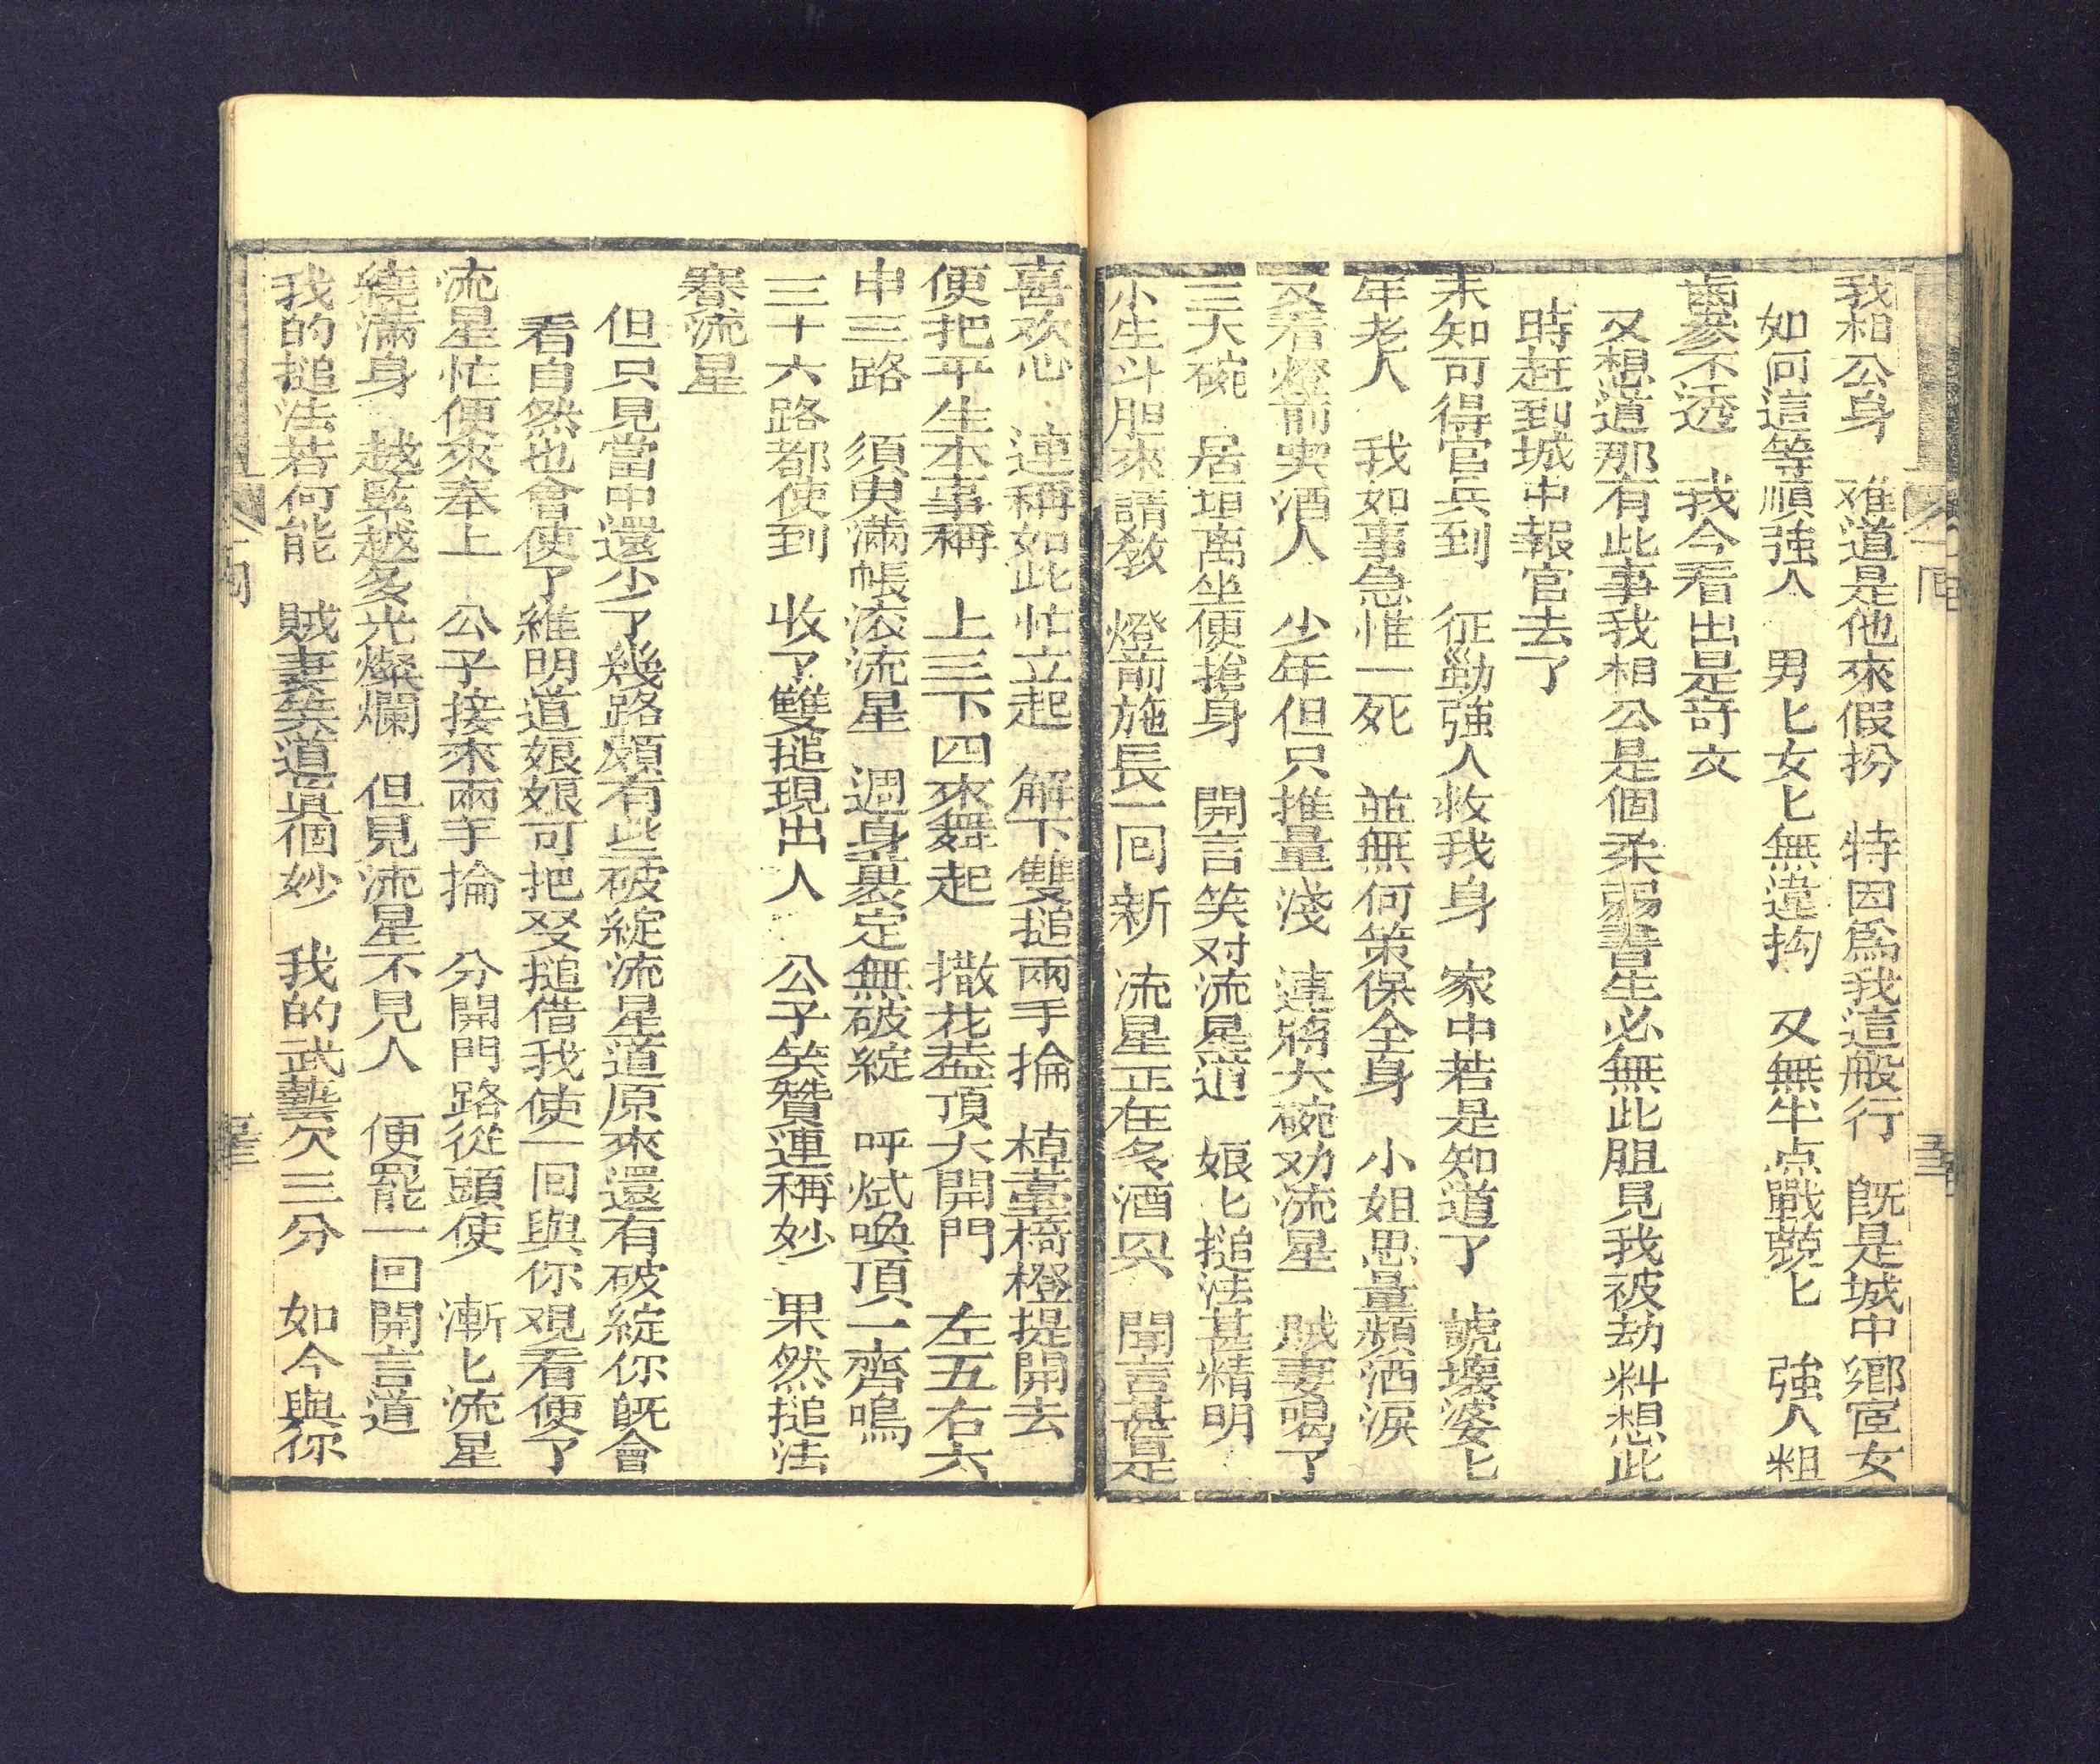 我相公身　难道是他來假扮　特因爲我這般行　旣是城中鄉宦女
如何這等順強人　男匕女匕無違拘　又無半点戰兢匕　強人粗
鹵參不透　我今看出是竒文
又想道那有此事我相公是個柔弱書生必無此胆見我被劫料想此
時赶到城中報官去了
未知可得官兵到　征勦強人救我身　家中若是知道了　諕壞婆匕
年老人　我如事急惟一死　並無何策保全身　小姐思量頻洒淚
又看燈前　酒人　少年但只推量淺　連將大碗劝流星　賊妻喝了
三大碗　居　离坐便搶身　開言笑对流星道　娘匕搥法甚精明
小生斗胆來請敎　燈前施長一囘新　流星正在多酒　　聞言甚是
喜欢心　連稱如此忙立起　解下雙搥兩手掄　植臺椅橙提開去
便把平生本事稱　上三下四來舞起　撒花盖頂大開門　左五右六
中三路　須臾滿帳滚流星　週身裹定無破綻　呼　喚頂一齊鳴
三十六路都使到　收了雙搥現出人　公子笑贊連稱妙　果然搥法
賽流星
但只見當中還少了幾路頗有些破綻流星道原來還有破綻你旣會
看自然也會使了維明道娘娘可把双搥借我使一囘與你观看便了
流星忙便來奉上　公子接來兩手掄　分開門路從頭使　漸匕流星
繞滿身　越緊越多光燦爛　但見流星不見人　便罷一回開言道
我的搥法若何能　賊妻笑道眞個妙　我的武藝欠三分　如今與你